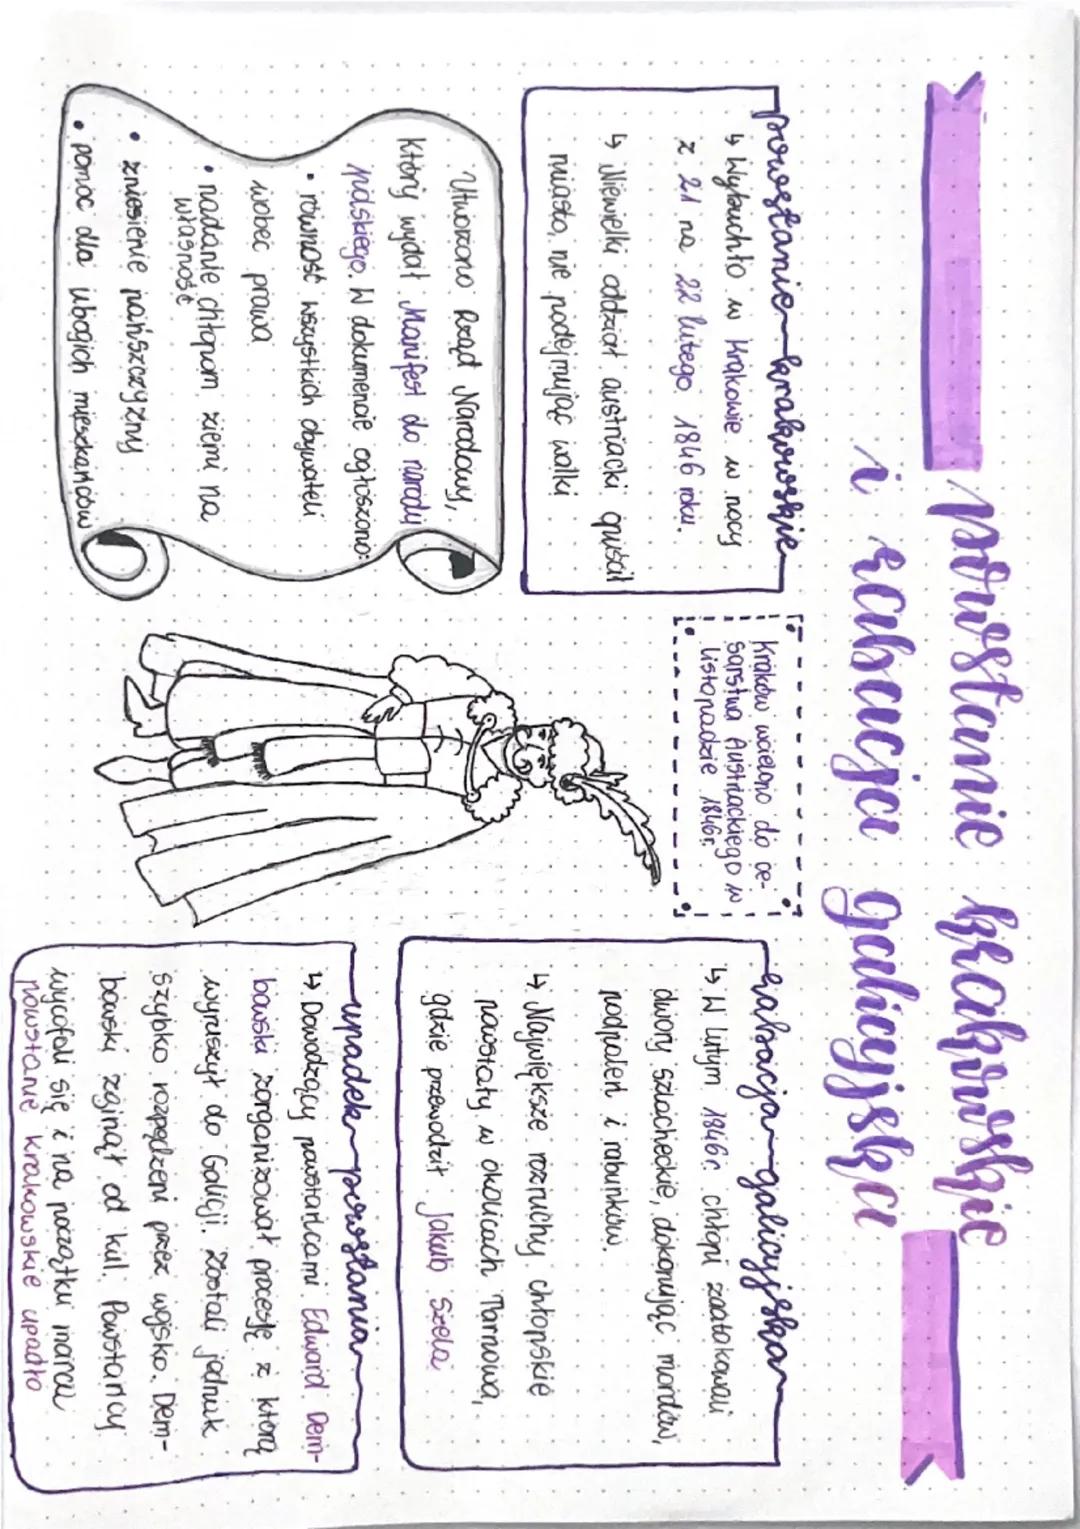 powstanie krakowskie
i rabacja galicyjska
powstanie krakowskie
↳ Wybuchło w Krakowie w nocy
z 21 na 22 lutego 1846 roku.
↳ Niewielki oddział austriacki opuścił
miasto, nie podejmując walki
Utworzono Rząd Narodowy,
Który wydał Manifest do narodu
polskiego. W dokumencie ogłoszono:
• równość wszystkich obywateli
wobec prawa
• nadanie chłopom ziemi na
własność
• zniesienie pańszczyzny
• pomoc dla ubogich mieszkańców
Kraków wcielono do ce-
sarstwa Austriackiego w
listopadzie 1846r.
rabacja galicyjska
↳ W lutym 1846r. chłopi zaatakowali
dwory szlacheckie, dokonując mordów,
podpaleń i rabunków.
↳ Największe rozruchy chłopskie
powstały w okolicach Tarnowa,
gdzie przewodził Jakub Szela
upadek powstania
↳ Dowodzący powstańcami Edward Dem-
bowski zorganizował procesję z którą
wyruszył do Galicji. Zostali jednak
szybko rozpędzeni przez wojsko. Dem-
bowski zginął od kul. Powstańcy
wycofali się i na początku marca
powstanie krakowskie upadło